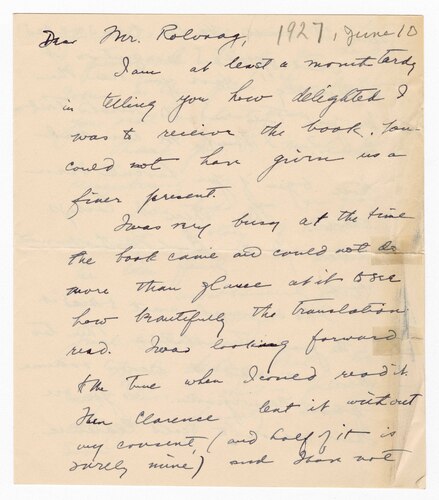 Dear Mr. Rolvaag, 1927, June 10
I am at least a month tardy
in telling you how delighted I
was to receive the book. You
could not have given us a
finer present.
I was very busy at the time
the book came and could not do
more than glance at it to see
how beautifully the translation
read. I was looking forward
to the time when I could read it.
Then Clarence lent it without
my consent, (and half of it is
surely mine) and I have not